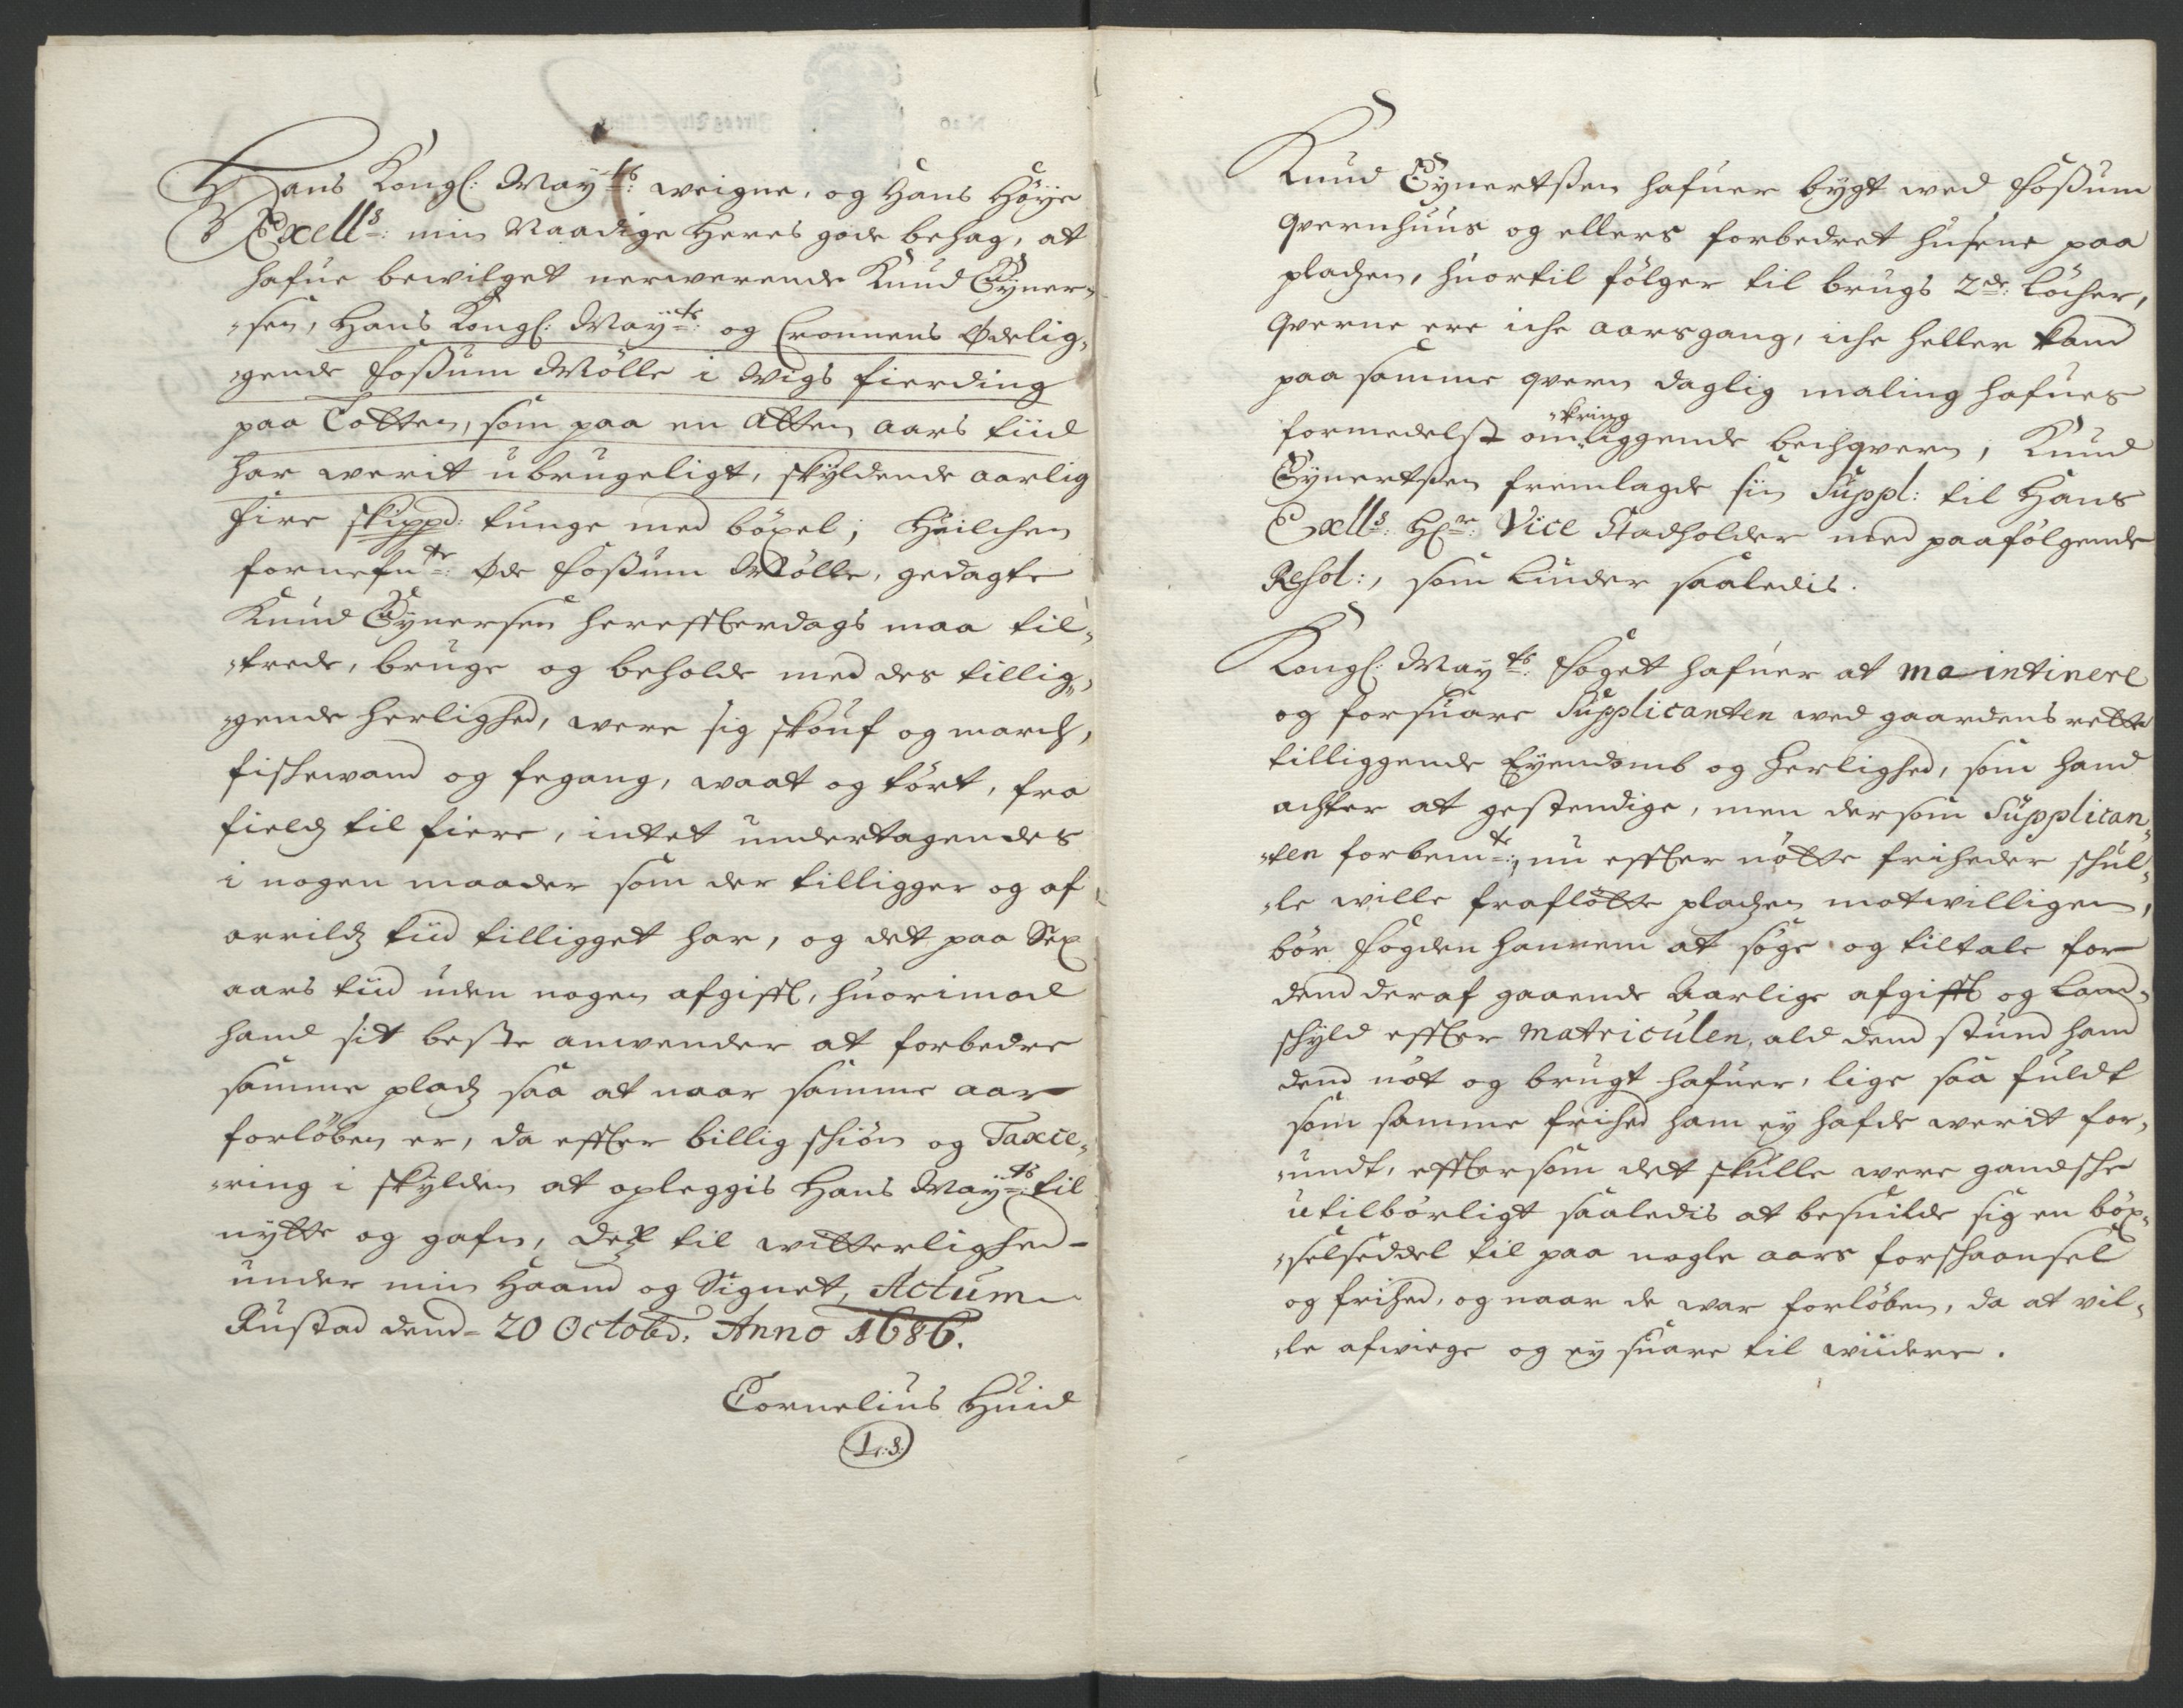 Hans Kongl: May:ts: weigne, og Hans Höye
Exells: min Naadige Herris gode behag, at
hafue bewilget nerwerende Knud Eyner„
„sen, Hans Kongl: May:ts: og Cronnens Ødelig„
„gende Foßum Mölle i Wigs fierding
paa Totten, som paa en Atten aars tiid
har werit ubrugeligt, skyldende aarlig
fire skippd: tunge med böxel; Huilchen
fornefnte: Øde Foßum Mölle, gedagte
Knud Eynersen hereffterdags maa til„
„trede, bruge og beholde med des tillig„
„gende herlighed, were sig skouf og march,
fischewand og fegang, waat og tört, fra
field til fiere, intet undertagendes
i nogen maader som der tilligger og af
arrilds tiid tilligget har, og det paa Sex
aars tiid uden nogen afgifft, huorimod
hand sit beste anwender at forbedre
samme plads saa at naar samme aar
forlöben er, da effter billig schiön og Taxie„
„ring i skylden at opleggis Hans May:ts: til
nytte og gafn, Dets til witterlighed
under min Haand og Signet, Actum
Rustad dend 20 Octobr: Anno 1686.
Cornelius Huid
L:S:
Knud Eynertßen hafuer bygt wed Foßum
qvernhuus og ellers forbedret husene paa
pladzen, huortil fölger til brugs 2de: Löcher,
qverne ere iche aarsgang, iche heller kand
paa samme qvern daglig maling hafues
„kring
formedelst omliggende bechqvern; Knud
Eynertßen fremlagde siin Suppl: til Hans
Exells: Hr: Vice Stadholder med paafölgende
Resol:, som liuder saaledis.
Kongl: May:ts: Foget hafuer at maintinere
og forsuare Supplicanten wed gaardens rette
tilliggende Eyendomb og Herlighed, som hand
achter at gestendige, men dersom Supplican„
„ten forbemte:, nu effter nötte friheder schul„
„le wille fraflötte pladzen motwilligen,
bör Fogden hannem at söge og tiltale for
dend deraf gaaende Aarlige afgifft og Land„
schyld effter Matriculen, ald dend stund hand
dend nöt og brugt hafuer, lige saa fuldt
som samme frihed ham ey hafde werit for„
„undt, efftersom det skulle were gandsche
utilbörligt saaledis at besuilde sig en böx„
„selseddel til paa nogle aars forschaansel
og frihed, og naar de war forlöben, da at vil„
„le afwiege og ey suare til widere.